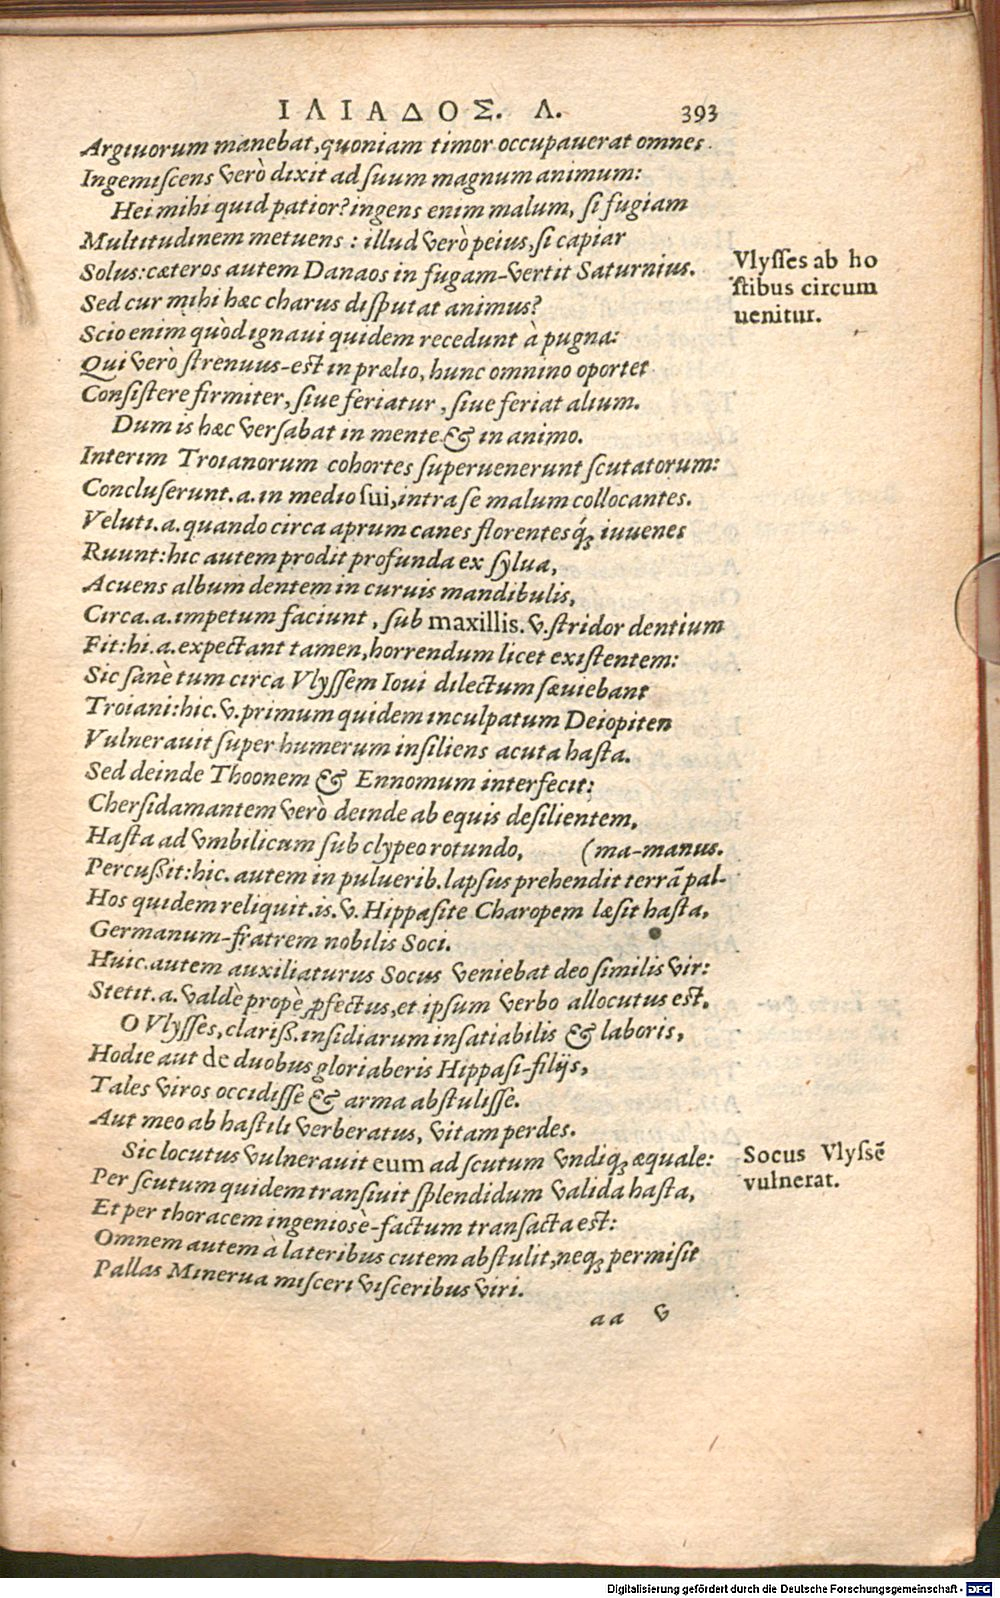 ΙΛΙΑΔΟΣ. Λ. 393
Argiuorum manebat, quoniam timor occupauerat omnes.
Ingemiſcens verò dixit ad ſuum magnum animum:
Hei mihi quid patior? ingens enim malum, ſi fugiam
Multitudinem metuens: illud verò peius, ſi capiar
Solus: cæteros autem Danaos in fugam-vertit Saturnius.
Sed cur mihi hæc charus diſputat animus?
Scio enim quòd ignaui quidem recedunt à pugna:
Qui verò ſtrenuus-eſt in prælio, hunc omnino oportet
Conſiſtere firmiter, ſiue feriatur, ſiue feriat alium.
Dum is hæc verſabat in mente & in animo.
Interim Troianorum cohortes ſuperuenerunt ſcutatorum:
Concluſerunt.a. in medio ſui, intra ſe malum collocantes.
Veluti.a. quando circa aprum canes florentesq́ꝫ iuuenes
Ruunt: hic autem prodit profunda ex ſylua,
Acuens album dentem in curuis mandibulis,
Circa.a. impetum faciunt, ſub maxillis. v. ſtridor dentium
Fit: hi.a. expectant tamen, horrendum licet exiſtentem:
Sic ſanè tum circa Vlyſſem Ioui dilectum ſæuiebant
Troiani: hic.v. primum quidem inculpatum Deiopiten
Vulnerauit ſuper humerum inſiliens acuta haſta.
Sed deinde Thoonem & Ennomum interfecit:
Cherſidamantem verò deinde ab equis deſilientem,
Haſta ad vmbilicum ſub clypeo rotundo, (ma-manus.
Percußit: hic. autem in puluerib. lapſus prehendit terrã pal-
Hos quidem reliquit. is. v. Hippaſite Charopem læſit haſta,
Germanum-fratrem nobilis Soci.
Huic. autem auxiliaturus Socus veniebat deo ſimilis vir:
Stetit. a. valdè propè ꝓfectus, et ipſum verbo allocutus eſt.
O Vlyſſes, clariß. inſidiarum inſatiabilis & laboris,
Hodie aut de duobus gloriaberis Hippaſi-filijs,
Tales viros occidiſſe & arma abſtuliſſe.
Aut meo ab haſtili verberatus, vitam perdes.
Sic locutus vulnerauit eum ad ſcutum vndiqꝫ æquale:
Per ſcutum quidem tranſiuit ſplendidum valida haſta,
Et per thoracem ingenioſè-factum tranſacta eſt:
Omnem autem à lateribus cutem abſtulit, neqꝫ permiſit
Pallas Minerua miſceri viſceribus viri.
aa v
Vlyſſes ab ho
ſtibus circum
uenitur.
Socus Vlyſsẽ
vulnerat.
Digitalisierung gefördert durch die Deutsche Forschungsgemeinschaft - DFG